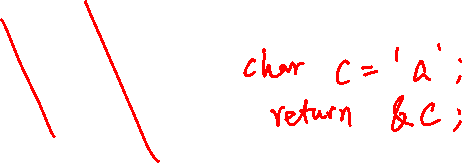 char c = 'a';
return &c;